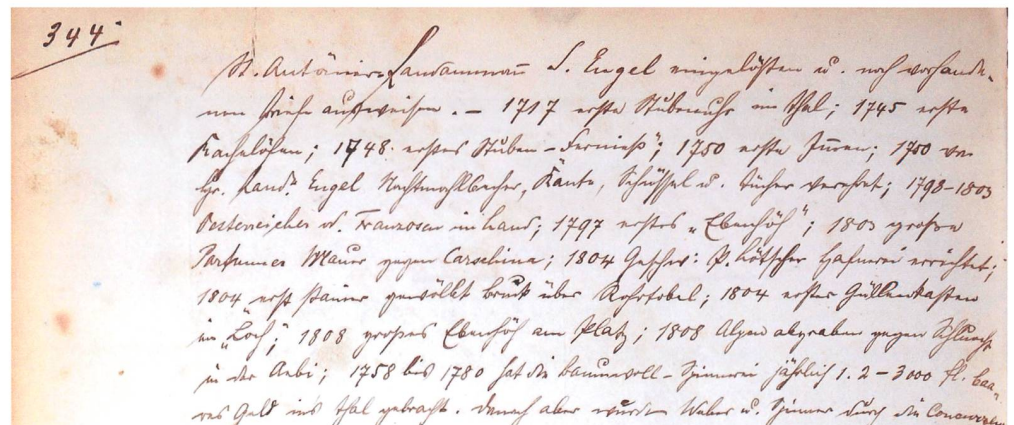 344.
St. Antönier-Landammann S. Engel eingelösten u. noch vorhande-
nen Briefe ausweisen. – 1717 erste Stubenuhr im Thal; 1745 erste
Kachelöfen; 1748 erstes Stuben-Ferniess"; 1750 erste ; 1750 von
Hr. Land. Engel Nachtmahlbecher, Kante, Schüssel u. Tücher verehrt; 1798–1803
Oesterreicher u. Franzosen im Land; 1797 erstes „Ebenhöh"; 1803 grosse
Partnuner Mauer gegen Carschina; 1804 Geschw: P. Lötscher Hafnerei errichtet;
1804 erst steiner gewölbt Bruck über Rohrtobel; 1804 erster Güllenkasten
im „Loch"; 1808 grosses Ebenhöh am Platz; 1808 Alpen abgraben gegen
in der Aebi; 1758 bis 1780 hat die Baumwoll-Spinnerei jährlich 1. 2–3000 fl. baa-
res Geld ins Thal gebracht. Danach aber wurden Weber u. Spinner durch die